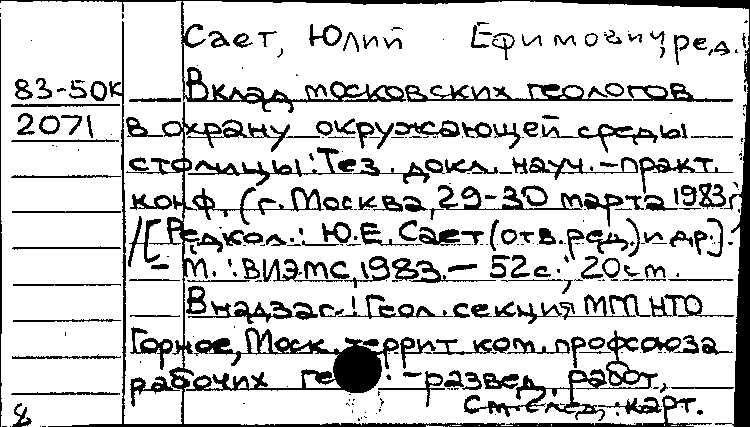 Сает, Юлий Ефимович, ред.
83-50к Вклад московских геологов
2071 в охрану окружающей среды
столицы: Тез. докл. науч.-практ.
конф. (г. Москва, 29-30 марта 1983г)
/[Редкол.: Ю.Е. Сает (отв. ред.) и др.].
- М.: ВИЭМС, 1983. - 52с.; 20см.
В надзаг.: Геол. секция МГП НТО
Горное, Моск. террит. ком. профсоюза
рабочих -развед. работ,
См. след. карт.
8